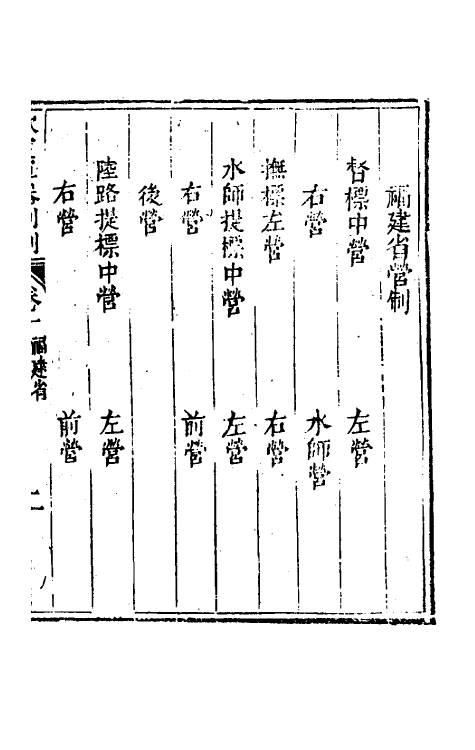 福建省營制
督標中營　左營
右營　水師營
撫標左營　右營
水師提標中營　左營
右營　前營
後營
陸路提標中營　左營
右營　前營
福建省